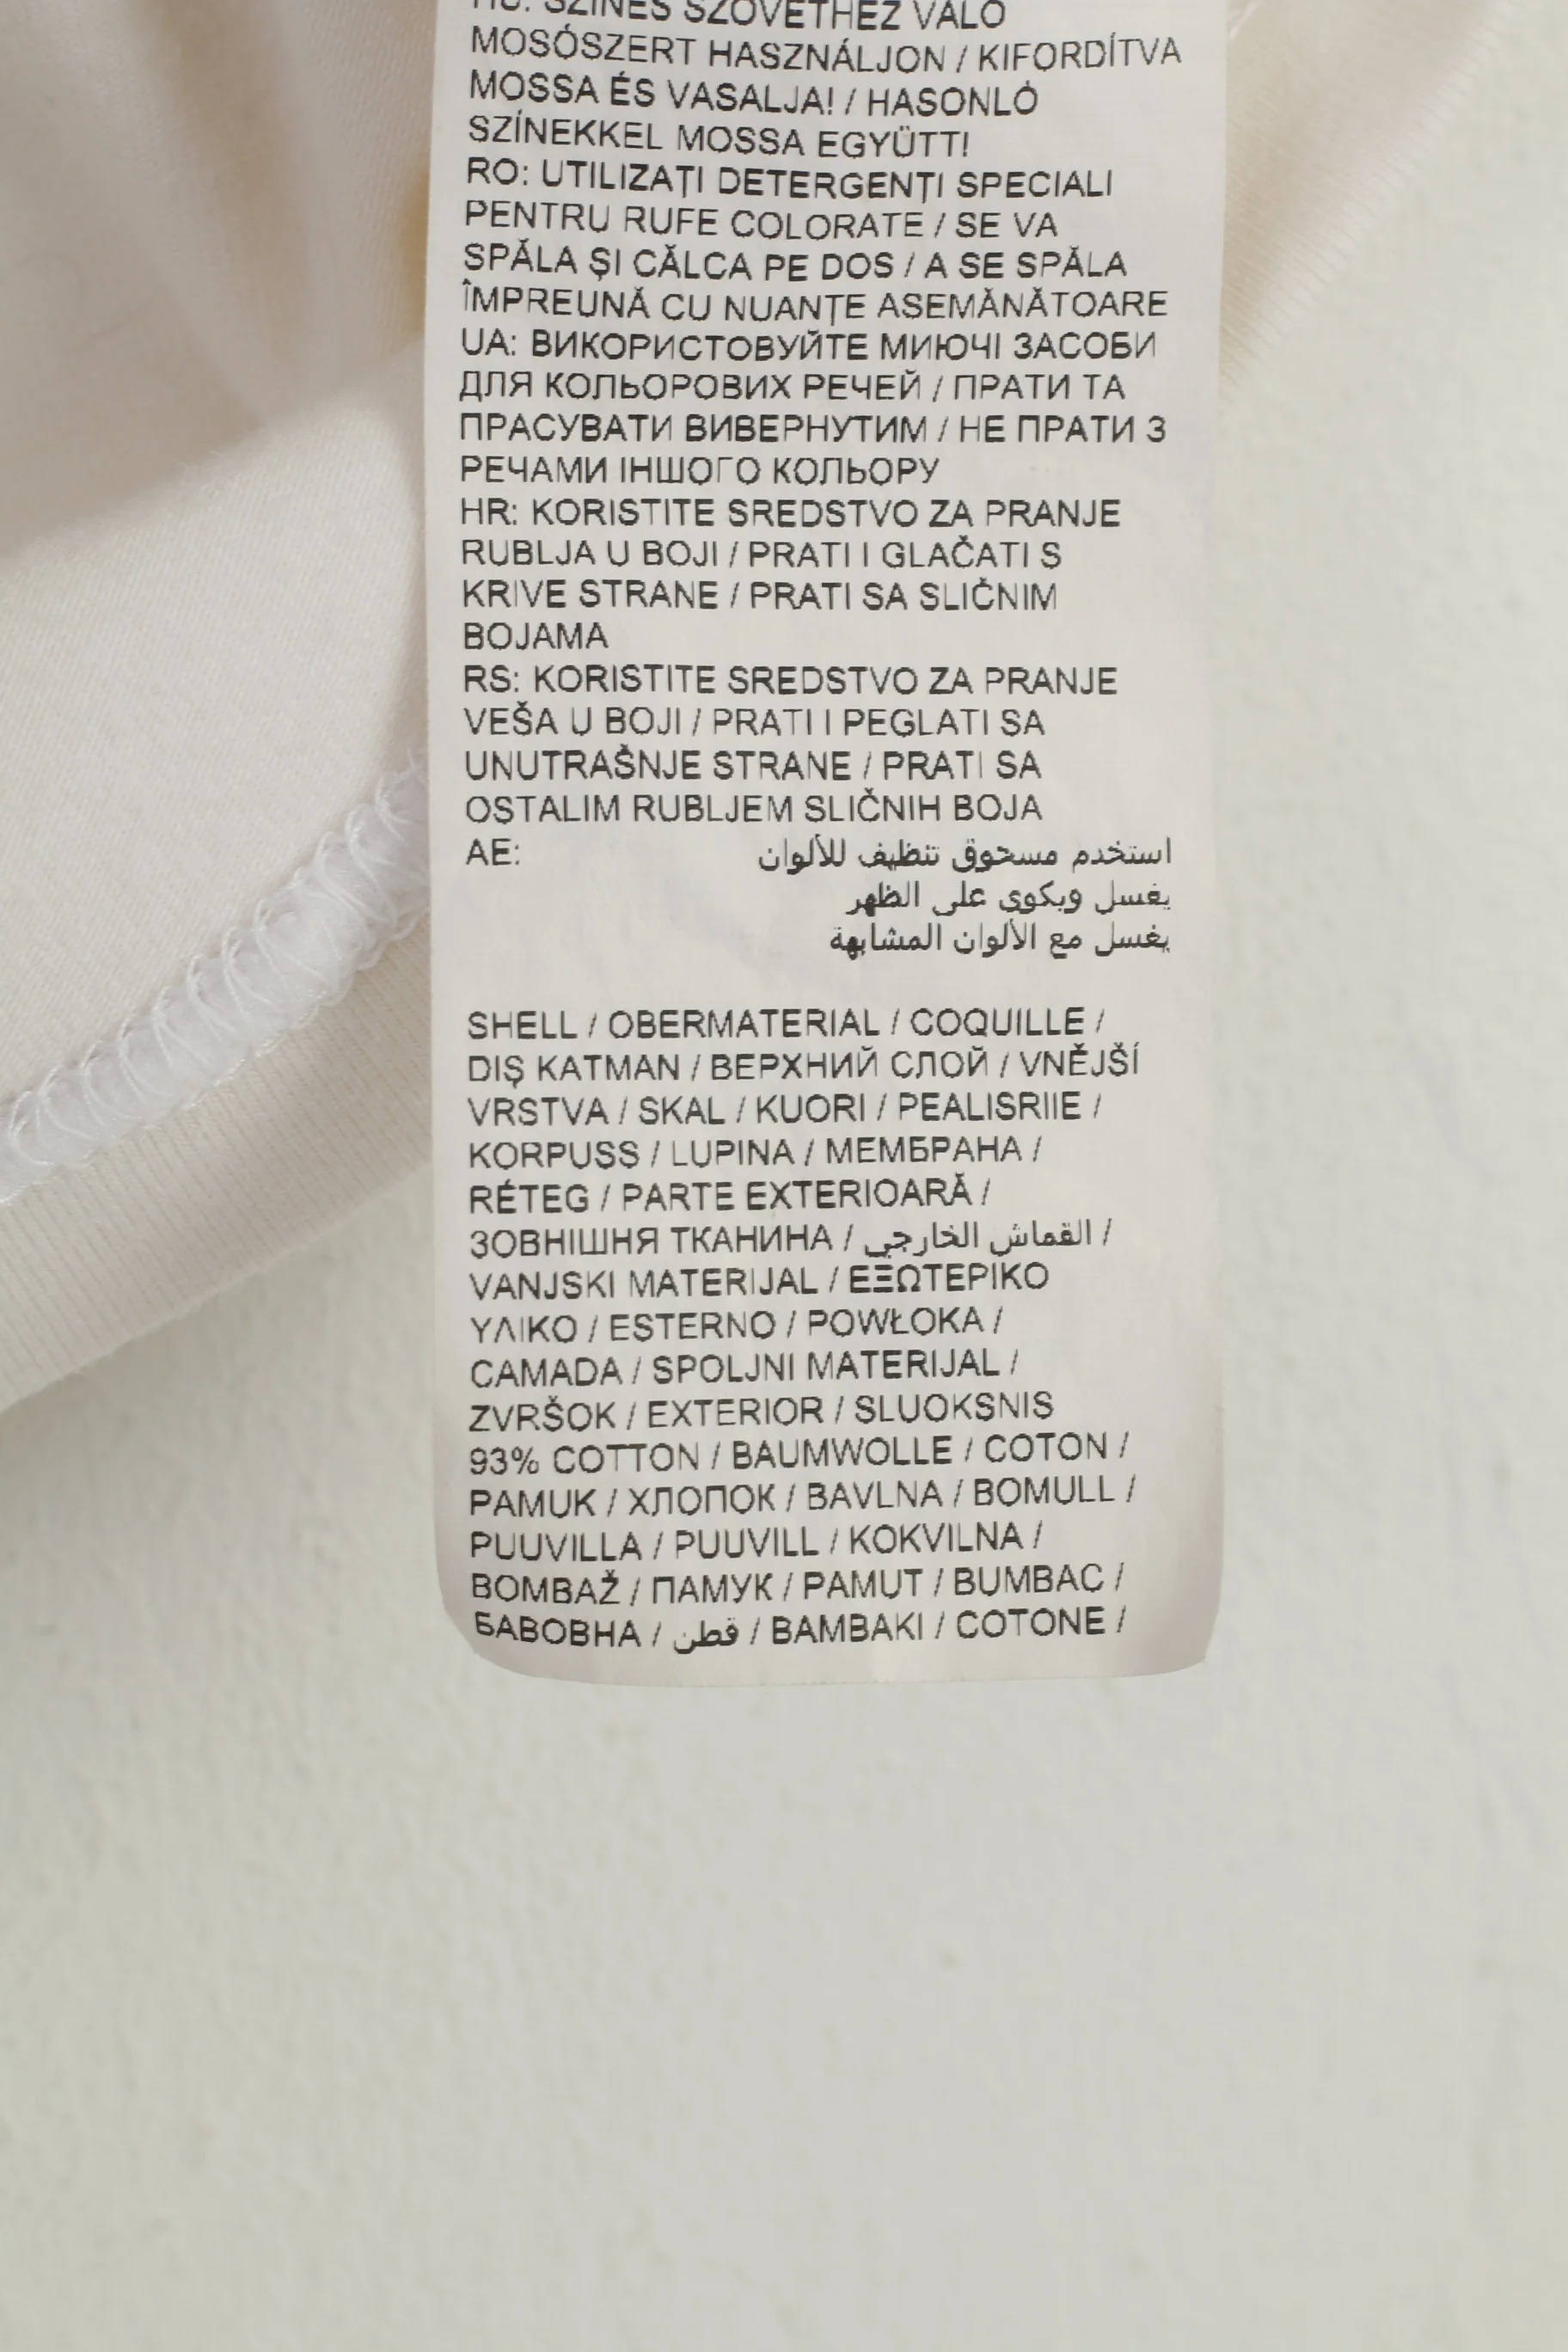 HU: SZÍNES SZÖVETHEZ VALÓ
MOSÓSZERT HASZNÁLJON / KIFORDÍTVA
MOSSA ÉS VASALJA! / HASONLÓ
SZÍNEKKEL MOSSA EGYÜTT!
RO: UTILIZAȚI DETERGENȚI SPECIALI
PENTRU RUFE COLORATE / SE VA
SPĂLA ȘI CĂLCA PE DOS / A SE SPĂLA
ÎMPREUNĂ CU NUANȚE ASEMĂNĂTOARE
UA: ВИКОРИСТОВУЙТЕ МИЮЧІ ЗАСОБИ
ДЛЯ КОЛЬОРОВИХ РЕЧЕЙ / ПРАТИ ТА
ПРАСУВАТИ ВИВЕРНУТИМ / НЕ ПРАТИ З
РЕЧАМИ ІНШОГО КОЛЬОРУ
HR: KORISTITE SREDSTVO ZA PRANJE
RUBLJA U BOJI / PRATI I GLAČATI S
KRIVE STRANE / PRATI SA SLIČNIM
BOJAMA
RS: KORISTITE SREDSTVO ZA PRANJE
VEŠA U BOJI / PRATI I PEGLATI SA
UNUTRAŠNJE STRANE / PRATI SA
OSTALIM RUBLJEM SLIČNIH BOJA
AE: استخدم مسحوق تنظيف للألوان
يغسل ويكوى على الظهر
يغسل مع الألوان المشابهة
SHELL / OBERMATERIAL / COQUILLE /
DIŞ KATMAN / ВЕРХНИЙ СЛОЙ / VNĚJŠÍ
VRSTVA / SKAL / KUORI / PEALISRIIE /
KORPUSS / LUPINA / МЕМБРАНА /
RÉTEG / PARTE EXTERIOARĂ /
ЗОВНІШНЯ ТКАНИНА / القماش الخارجي /
VANJSKI MATERIJAL / ΕΞΩΤΕΡΙΚΟ
ΥΛΙΚΟ / ESTERNO / POWŁOKA /
CAMADA / SPOLJNI MATERIJAL /
ZVRŠOK / EXTERIOR / SLUOKSNIS
93% COTTON / BAUMWOLLE / COTON /
PAMUK / ХЛОПОК / BAVLNA / BOMULL /
PUUVILLA / PUUVILL / KOKVILNA /
BOMBAŽ / ПАМУК / PAMUT / BUMBAC /
БАВОВНА / قطن / BAMBAKI / COTONE /